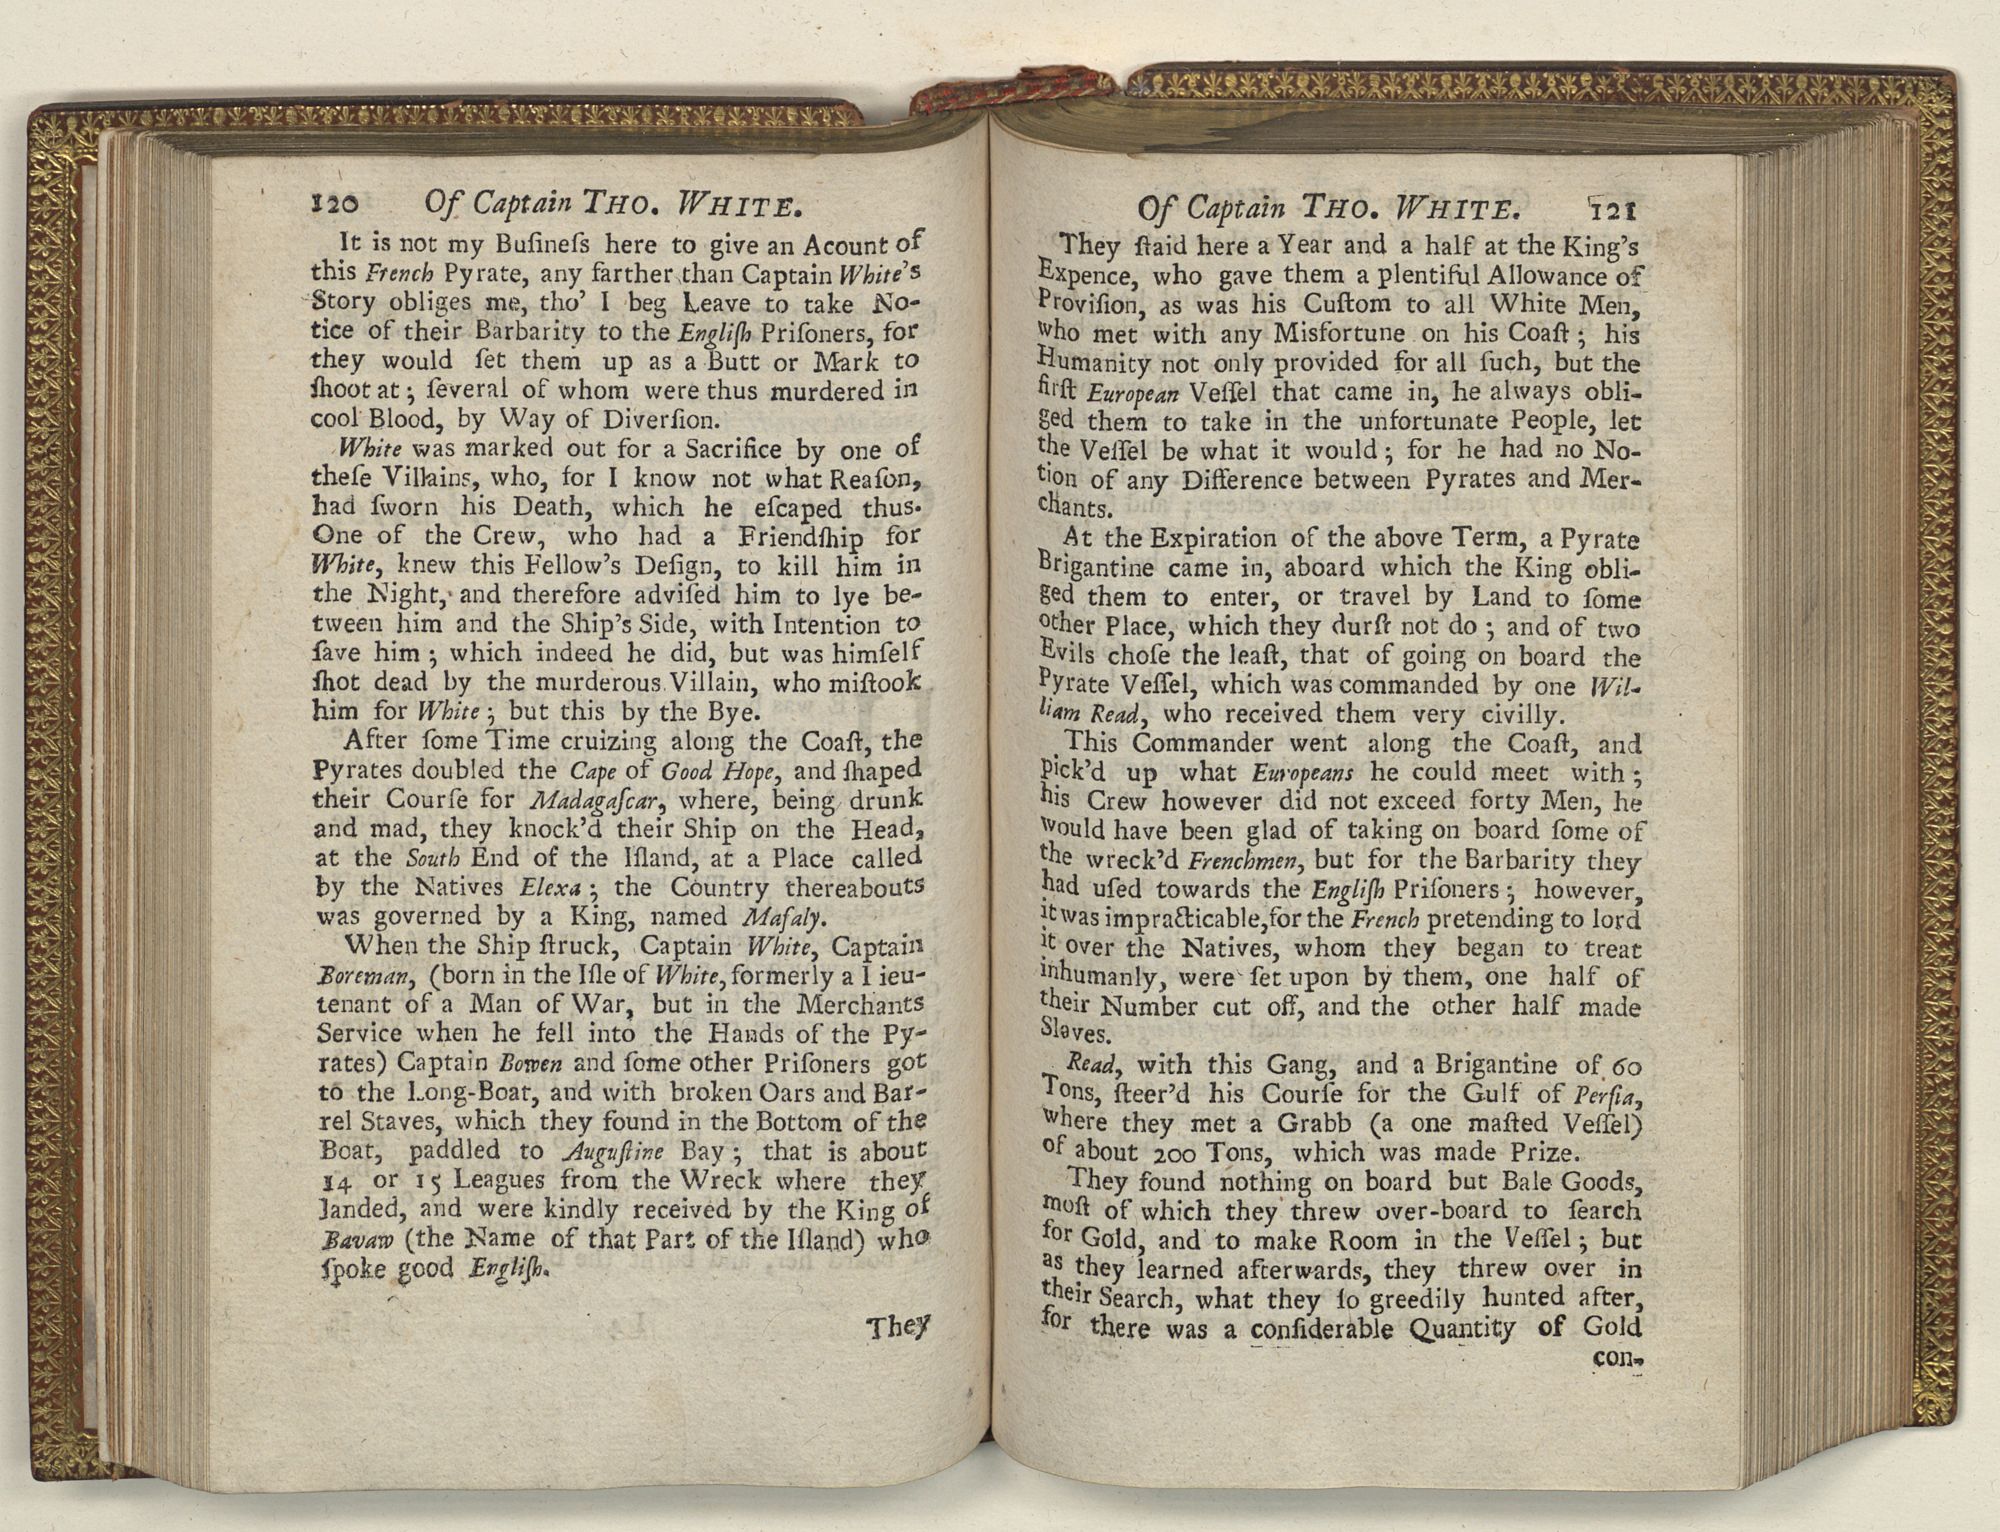 120 Of Captain THO. WHITE.
It is not my Buſineſs here to give an Acount of
this French Pyrate, any farther than Captain White's
Story obliges me, tho' I beg Leave to take No-
tice of their Barbarity to the Engliſh Priſoners, for
they would ſet them up as a Butt or Mark to
ſhoot at; ſeveral of whom were thus murdered in
cool Blood, by Way of Diverſion.
White was marked out for a Sacrifice by one of
theſe Villains, who, for I know not what Reaſon,
had ſworn his Death, which he eſcaped thus.
One of the Crew, who had a Friendſhip for
White, knew this Fellow's Deſign, to kill him in
the Night, and therefore adviſed him to lye be-
tween him and the Ship's Side, with Intention to
ſave him; which indeed he did, but was himſelf
ſhot dead by the murderous Villain, who miſtook
him for White; but this by the Bye.
After ſome Time cruizing along the Coaſt, the
Pyrates doubled the Cape of Good Hope, and ſhaped
their Courſe for Madagaſcar, where, being drunk
and mad, they knock'd their Ship on the Head,
at the South End of the Iſland, at a Place called
by the Natives Elexa; the Country thereabouts
was governed by a King, named Mafaly.
When the Ship ſtruck, Captain White, Captain
Boreman, (born in the Iſle of White, formerly a Lieu-
tenant of a Man of War, but in the Merchants
Service when he fell into the Hands of the Py-
rates) Captain Bowen and ſome other Priſoners got
to the Long-Boat, and with broken Oars and Bar-
rel Staves, which they found in the Bottom of the
Boat, paddled to Auguſtine Bay; that is about
14 or 15 Leagues from the Wreck where they
landed, and were kindly received by the King of
Bavaw (the Name of that Part of the Iſland) who
ſpoke good Engliſh.
They
Of Captain THO. WHITE. 121
They ſtaid here a Year and a half at the King's
Expence, who gave them a plentiful Allowance of
Proviſion, as was his Cuſtom to all White Men,
who met with any Misfortune on his Coaſt; his
Humanity not only provided for all ſuch, but the
firſt European Veſſel that came in, he always obli-
ged them to take in the unfortunate People, let
the Veſſel be what it would; for he had no No-
tion of any Difference between Pyrates and Mer-
chants.
At the Expiration of the above Term, a Pyrate
Brigantine came in, aboard which the King obli-
ged them to enter, or travel by Land to ſome
other Place, which they durſt not do; and of two
Evils choſe the leaſt, that of going on board the
Pyrate Veſſel, which was commanded by one Wil-
liam Read, who received them very civilly.
This Commander went along the Coaſt, and
pick'd up what Europeans he could meet with;
his Crew however did not exceed forty Men, he
would have been glad of taking on board ſome of
the wreck'd Frenchmen, but for the Barbarity they
had uſed towards the Engliſh Priſoners; however,
it was impracticable, for the French pretending to lord
it over the Natives, whom they began to treat
inhumanly, were ſet upon by them, one half of
their Number cut off, and the other half made
Slaves.
Read, with this Gang, and a Brigantine of 60
Tons, ſteer'd his Courſe for the Gulf of Perſia,
where they met a Grabb (a one maſted Veſſel)
of about 200 Tons, which was made Prize.
They found nothing on board but Bale Goods,
moſt of which they threw over-board to ſearch
for Gold, and to make Room in the Veſſel; but
as they learned afterwards, they threw over in
their Search, what they ſo greedily hunted after,
for there was a conſiderable Quantity of Gold
con-